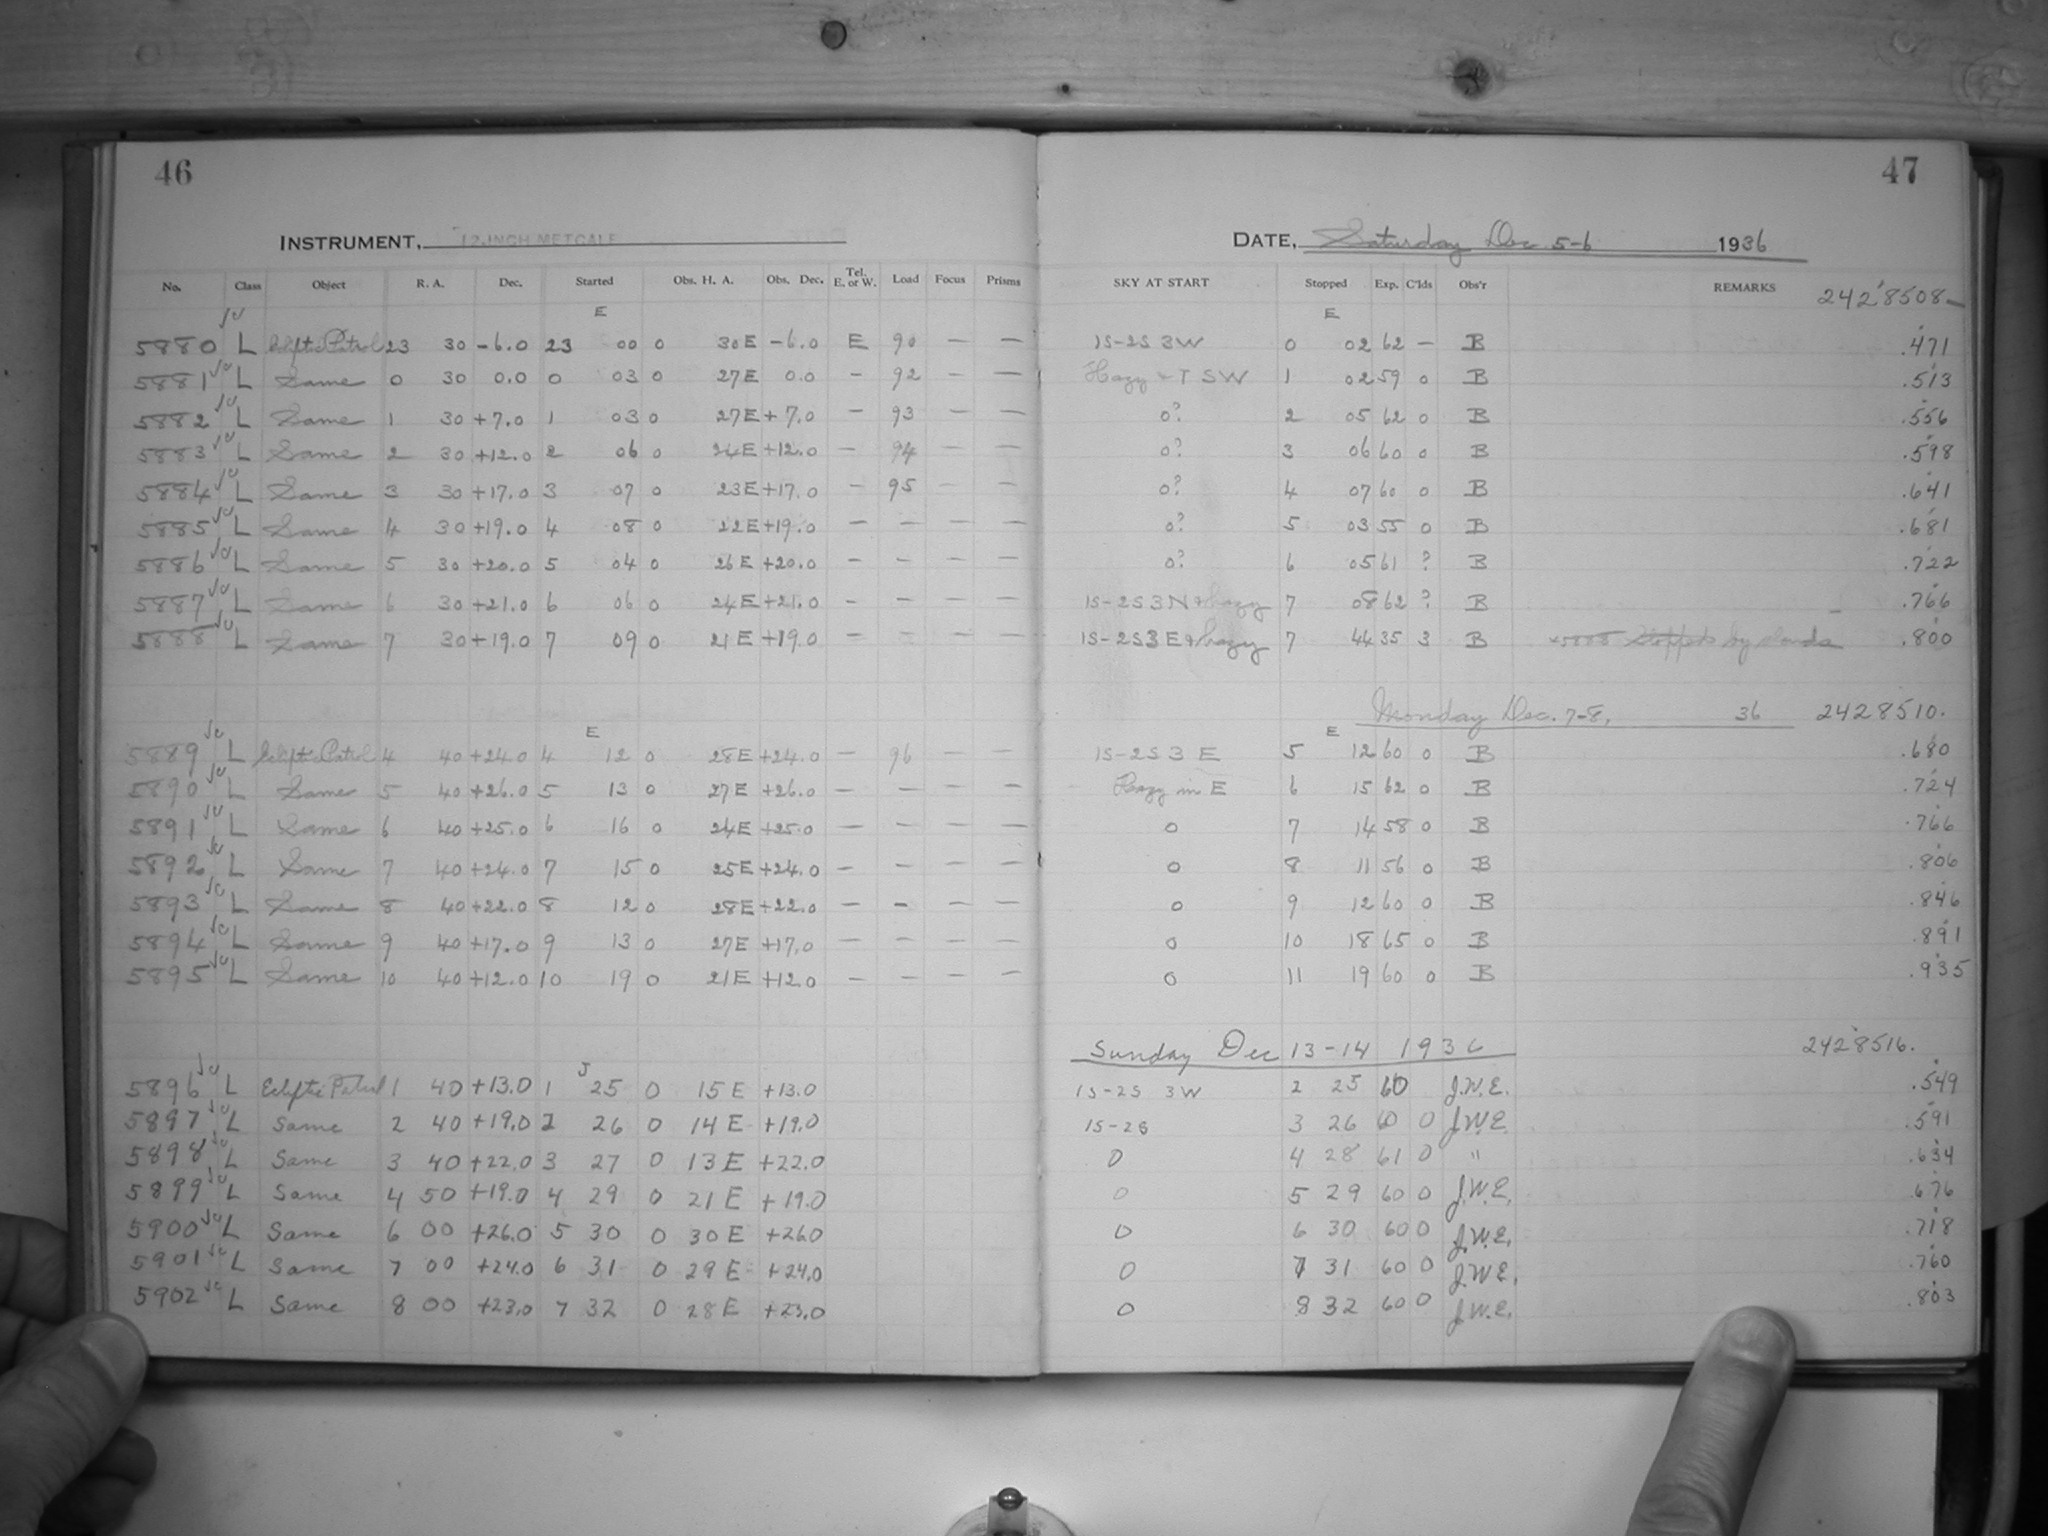 46
47
INSTRUMENT, 12-INCH METCALF
DATE, Saturday Dec. 5-6 1936
No. Class Object R. A. Dec. Started Obs. H. A. Obs. Dec. Tel. E. or W. Load Focus Prisms SKY AT START Stopped Exp. C'lds Obs'r REMARKS 2428508—
E E
5880 L Ecliptic Patrol 23 30 -6.0 23 00 0 30E -6.0 E 90 — — 1S-2S 3W 0 02 62 — B .471
5881 L Same 0 30 0.0 0 03 0 27E 0.0 - 92 — — Hazy + T SW 1 02 59 0 B .513
5882 L Same 1 30 +7.0 1 03 0 27E +7.0 - 93 — — 0? 2 05 62 0 B .556
5883 L Same 2 30 +12.0 2 06 0 24E +12.0 - 94 — — 0? 3 06 60 0 B .598
5884 L Same 3 30 +17.0 3 07 0 23E +17.0 - 95 — — 0? 4 07 60 0 B .641
5885 L Same 4 30 +19.0 4 08 0 22E +19.0 — — — — 0? 5 03 55 0 B .681
5886 L Same 5 30 +20.0 5 04 0 26E +20.0 — — — — 0? 6 05 61 ? B .722
5887 L Same 6 30 +21.0 6 06 0 24E +21.0 - — — — 1S-2S 3N + hazy 7 08 62 ? B .766
5888 L Same 7 30 +19.0 7 09 0 21E +19.0 — — — — 1S-2S 3E + hazy 7 44 35 3 B 5888 Stopped by clouds .800
Monday Dec. 7-8, 36 2428510.
E E
5889 L Ecliptic Patrol 4 40 +24.0 4 12 0 28E +24.0 — 96 — — 1S-2S 3 E 5 12 60 0 B .680
5890 L Same 5 40 +26.0 5 13 0 27E +26.0 — — — — Hazy in E 6 15 62 0 B .724
5891 L Same 6 40 +25.0 6 16 0 24E +25.0 — — — — 0 7 14 58 0 B .766
5892 L Same 7 40 +24.0 7 15 0 25E +24.0 — — — — 0 8 11 56 0 B .806
5893 L Same 8 40 +22.0 8 12 0 28E +22.0 — — — — 0 9 12 60 0 B .846
5894 L Same 9 40 +17.0 9 13 0 27E +17.0 — — — — 0 10 18 65 0 B .891
5895 L Same 10 40 +12.0 10 19 0 21E +12.0 — — — — 0 11 19 60 0 B .935
Sunday Dec 13-14 1936 2428516.
J
5896 L Ecliptic Patrol 1 40 +13.0 1 25 0 15E +13.0 1S-2S 3W 2 25 60 J.W.E. .549
5897 L Same 2 40 +19.0 2 26 0 14E +19.0 1S-2S 3 26 60 0 J.W.E. .591
5898 L Same 3 40 +22.0 3 27 0 13E +22.0 0 4 28 61 0 " .634
5899 L Same 4 50 +19.0 4 29 0 21E +19.0 0 5 29 60 0 J.W.E. .676
5900 L Same 6 00 +26.0 5 30 0 30E +26.0 0 6 30 60 0 J.W.E. .718
5901 L Same 7 00 +24.0 6 31 0 29E +24.0 0 7 31 60 0 J.W.E. .760
5902 L Same 8 00 +23.0 7 32 0 28E +23.0 0 8 32 60 0 J.W.E. .803